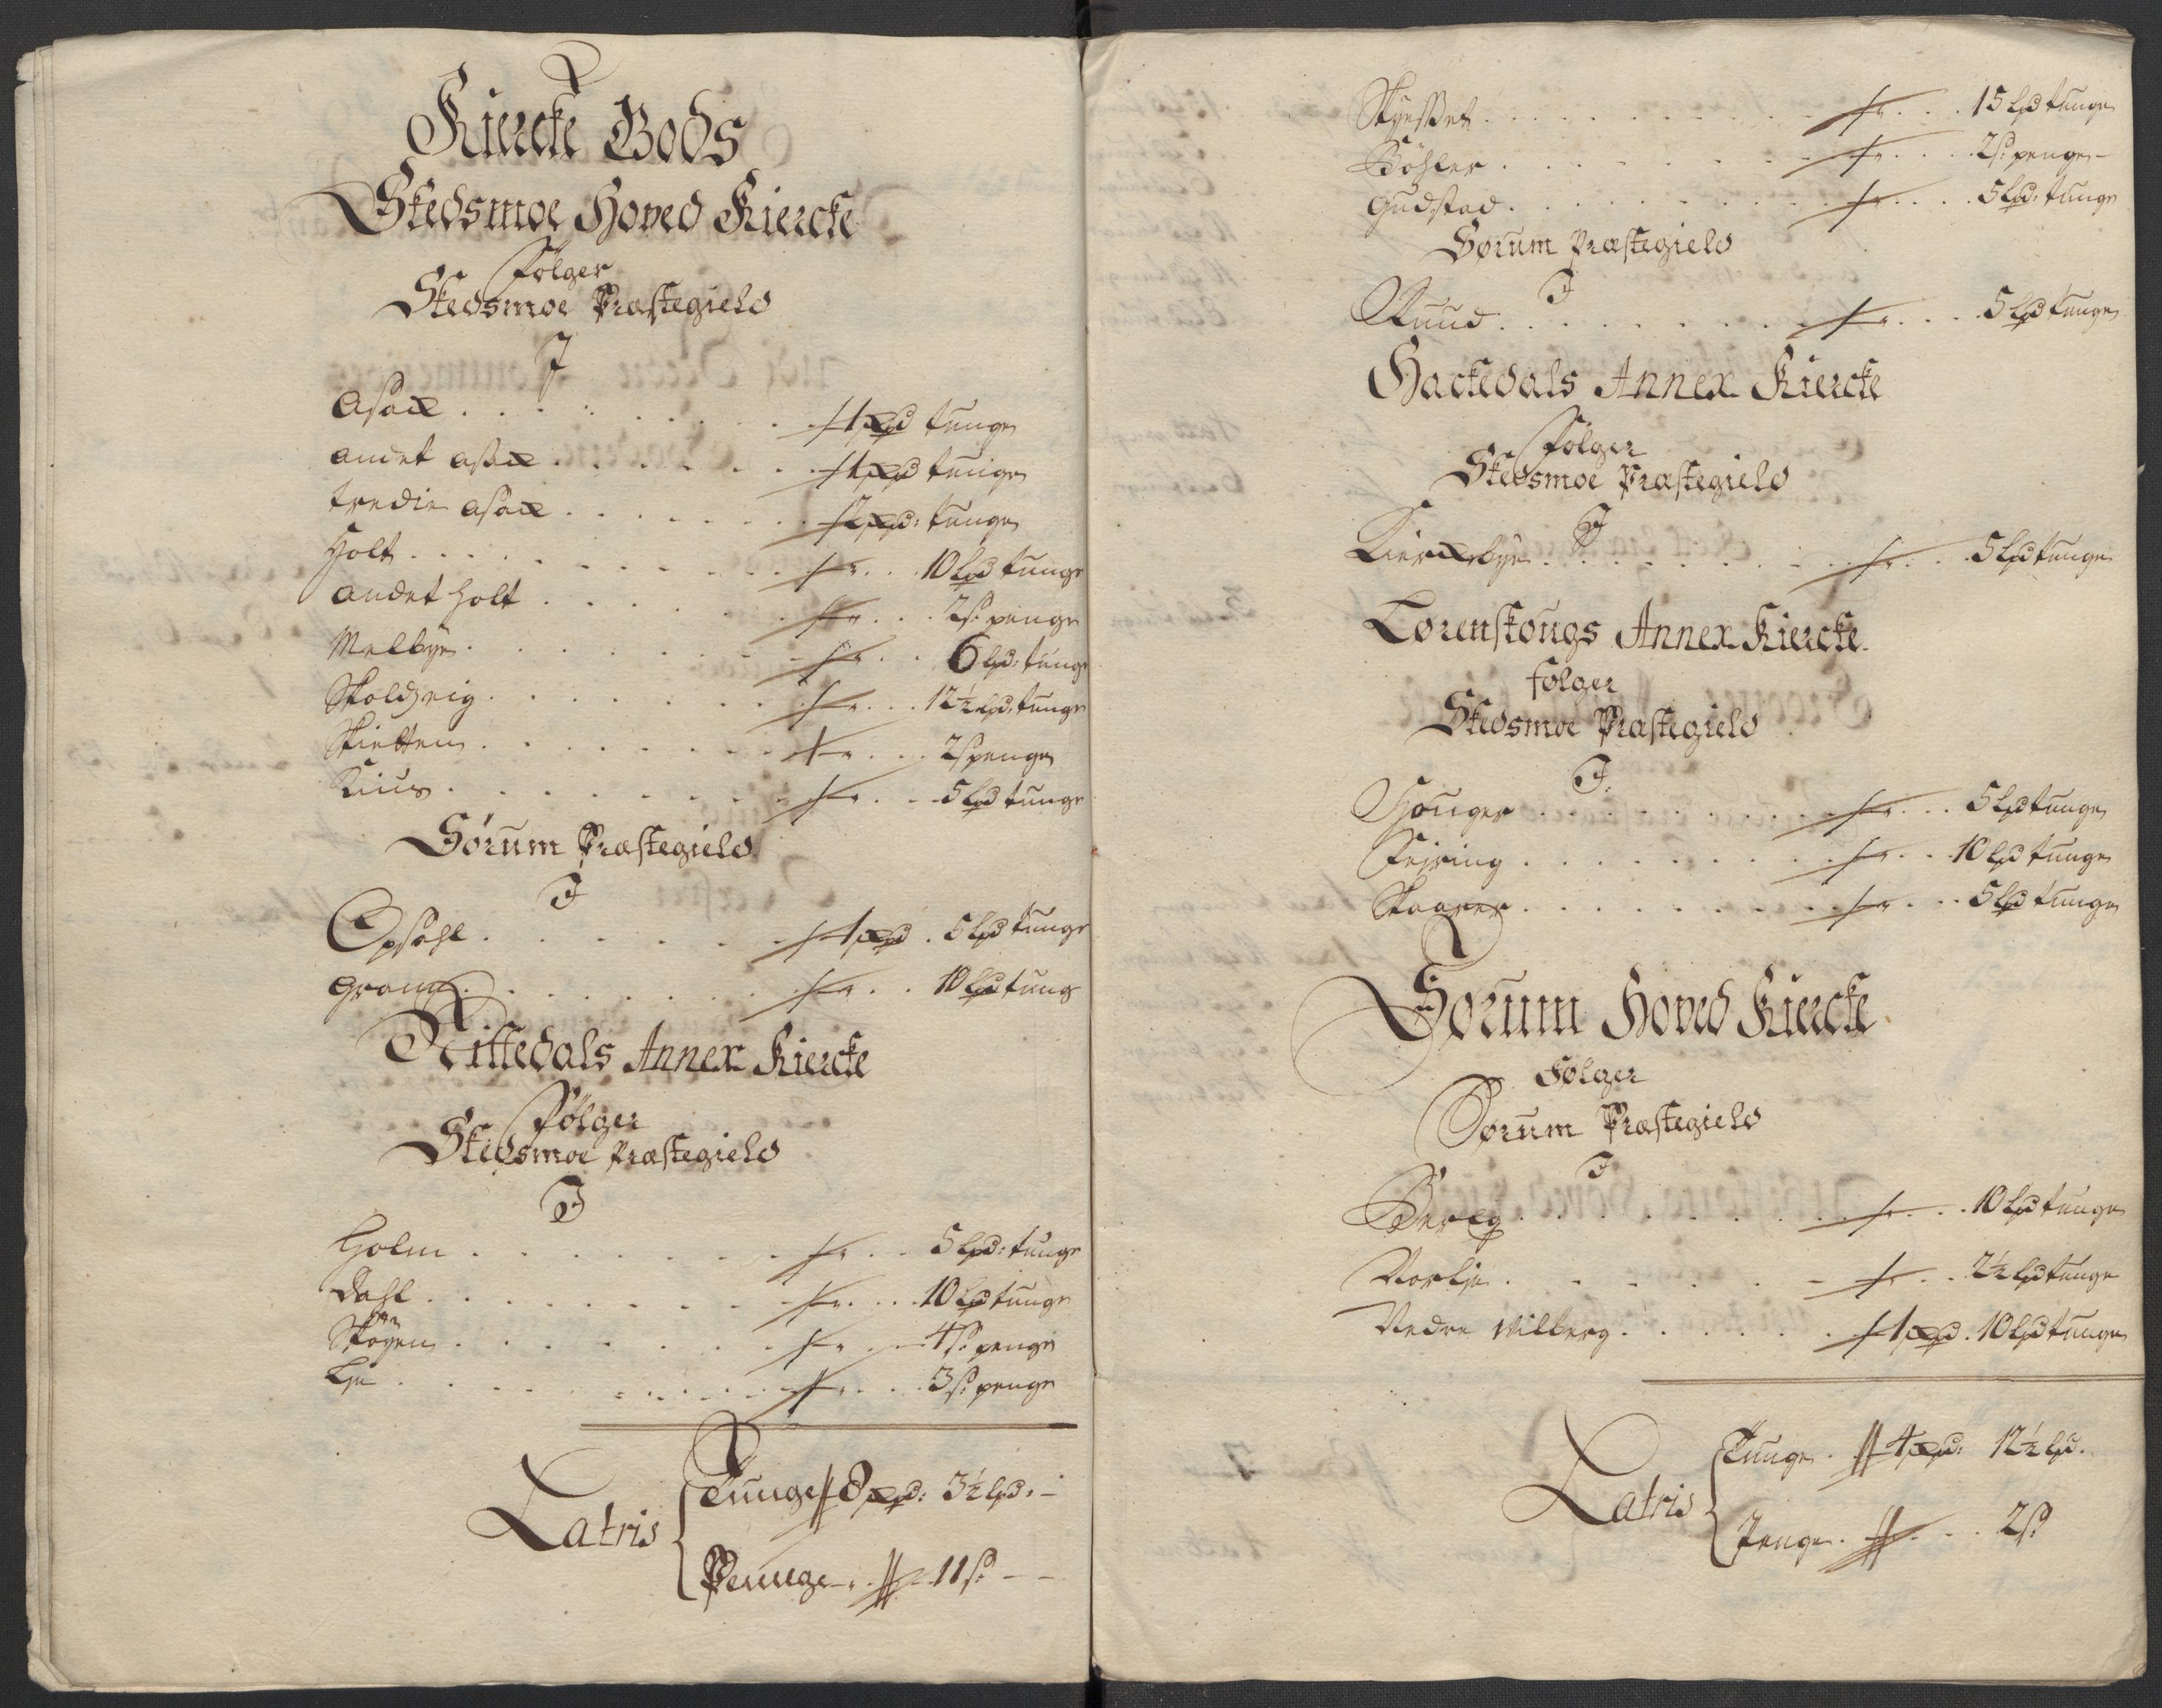 Kiercke Gods
Skedsmoe Hoved Kiercke
Følger
Skedsmoe Præstegield
I
Asack . . . . 1 skpd tunge
andet asack . . . . 1 skpd tunge
tredie asack . . . . 2 skpd: tunge
Holt . . . . 10 lpd tunge
andet holt . . . . 2 s: penge
Melbye . . . . 6 lpd: tunge
Skoldvig . . . . 12½ lpd: tunge
Skietten . . . . 2 s penge
Kius . . . . 5 lpd tunge
Sørum Præstegield
I
Opsahl . . . . 1 skpd . 5 lpd tunge
. . . . 10 lpd tung
Nittedals Annex Kiercke
Følger
Skedsmoe Præstegield
I
Holm . . . . 5 lpd: tunge
Dahl . . . . 10 lpd tunge
Skøyen . . . . 4 s: penge
Lje . . . . 3 s: penge
Latris
Tunge 8 skpd: 3½ lpd: -
Pennge - 11 s: - -
. . . . 15 lpd tunge
Bøhler . . . . 2 s: penge -
Gudstad . . . . 5 lpd: tunge
Sørum Præstegield
I
Ruud . . . . 5 lpd tunge
Hackedals Annex Kiercke
Følger
Skedsmoe Præstegield
I
Kierckebye . . . . 5 lpd tunge
Lørenskougs Annex Kiercke.
følger
Skedsmoe Præstegield
I.
Houger . . . . 5 lpd tunge
Feiring . . . . 10 lpd tunge
Skaarer . . . . 5 lpd tunge
Sørum Hoved Kiercke
Følger
Sørum Præstegield
I
Bereg . . . . 10 lpd tunge
Norlje . . . . 2½ lpd tunge
Nedre Vilberg . . . . 1 skpd . 10 lpd tunge
Latris
Tunge . 4 skpd: 12½ lpd.
Penge . . . 2 s: